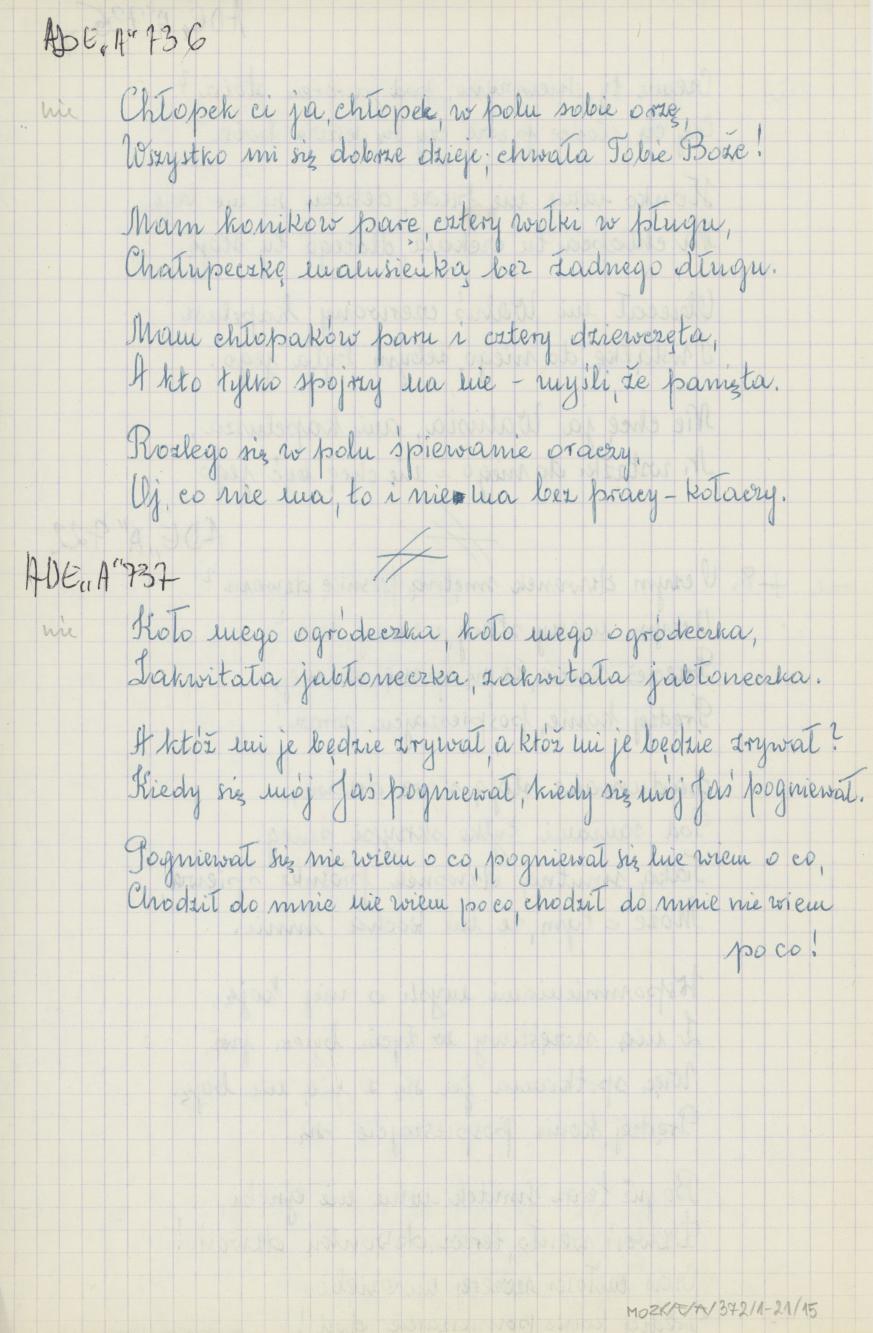 ADE „A” 736
nie
Chłopek ci ja, chłopek, w polu sobie orzę,
Wszystko mi się dobrze dzieje; chwała Tobie Boże!
Mam koników parę, cztery wołki w pługu,
Chałupeczkę malusieńką bez żadnego długu.
Mam chłopaków paru i cztery dziewczęta,
A kto tylko spojrzy na nie - myśli, że panięta.
Rozlego się w polu śpiewanie oraczy,
Oj, co nie ma, to i nie ma bez pracy - kołaczy.
ADE „A” 737
nie
Koło mego ogródeczka, koło mego ogródeczka,
Zakwitała jabłoneczka, zakwitała jabłoneczka.
A któż mi je będzie zrywał, a któż mi je będzie zrywał?
Kiedy się mój Jaś pogniewał, kiedy się mój Jaś pogniewał.
Pogniewał się nie wiem o co, pogniewał się nie wiem o co,
Chodził do mnie nie wiem po co, chodził do mnie nie wiem
po co!
MOZK/E/A/372/1-21/15